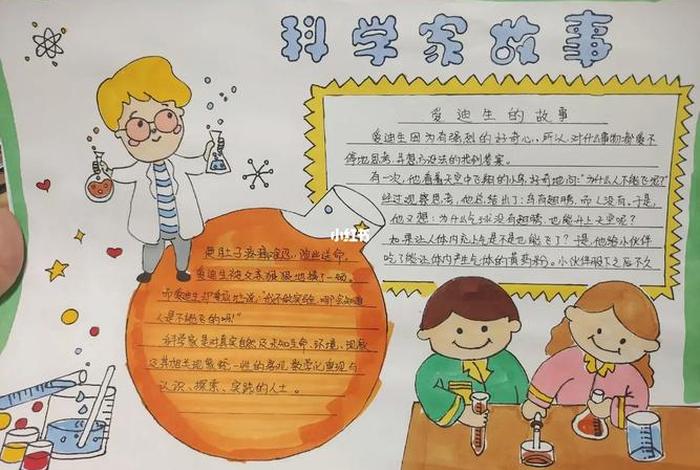 科学家故事
爱迪生的故事
爱迪生因为有强烈的好奇心,所以,对什么事物都爱不
停地思考,寻想方设法的找到答案。
有一次,他看着天空中飞翔的小鸟,好奇地问:“为什么人不能飞呢?”
经过观察思考,他总结出了:鸟有翅膀,而人没有。于是,
他又想:为什么气球没有翅膀,也能升上天空呢?
如果让人体内充上气是不是也能飞了?于是,他给小伙伴
吃了能让体内产生气体的药粉。小伙伴服下之后不久
便肚子疼痛难忍,险些丧命。
爱迪生被父亲狠狠地揍了一顿。
而爱迪生却说:“我不做实验,哪会知道
人是不能飞的呢!”
科学家是对真实自然及未知生命、环境、现象
及其相关现象统一性的客观数字化重现与
认识、探索、实践的人士。
小红书